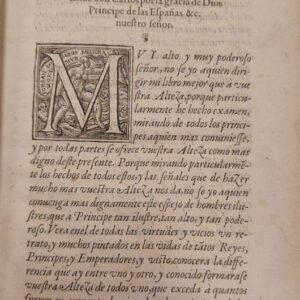 don Carlos por la gracia de Dios
Principe de las Españas &c.
nuestro señor.
MVY alto, y muy poderoso
señor, no se yo aquien dirigir
mi libro mejor que a vuestra
Alteza, porque particularmente
he hecho examen,
mirando de todos los principes,
aquien mas conuiniesse,
y por todas partes se ofrece vuestra Alteza como mas
digno deste presente. Porque mirando particularmente
los hechos de todos estos, y las señales que de hazer
mucho mas vuestra Alteza nos da, no se yo aquien
conuenga mas dignamente este espejo de hombres illustres,
que a Principe tan illustre, tan alto, y tan poderoso.
Vera en el de todas las virtudes y vicios vn retrato,
y muchos pintados en las vidas de tātos Reyes,
Principes, y Emperadores, y visto, conocera la differencia
que ay entre vno y otro, y conocido formarase
vuestra Alteza de todos vno, que exceda a quantos